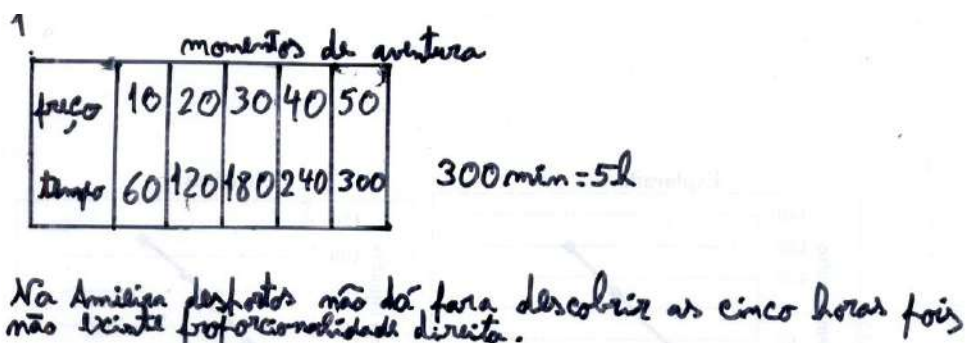 1
momentos de aventura
preço 10 20 30 40 50
tempo 60 120 180 240 300
300 min = 5h
Na Amieira desportos não dá para descobrir as cinco horas pois
não existe proporcionalidade direita.